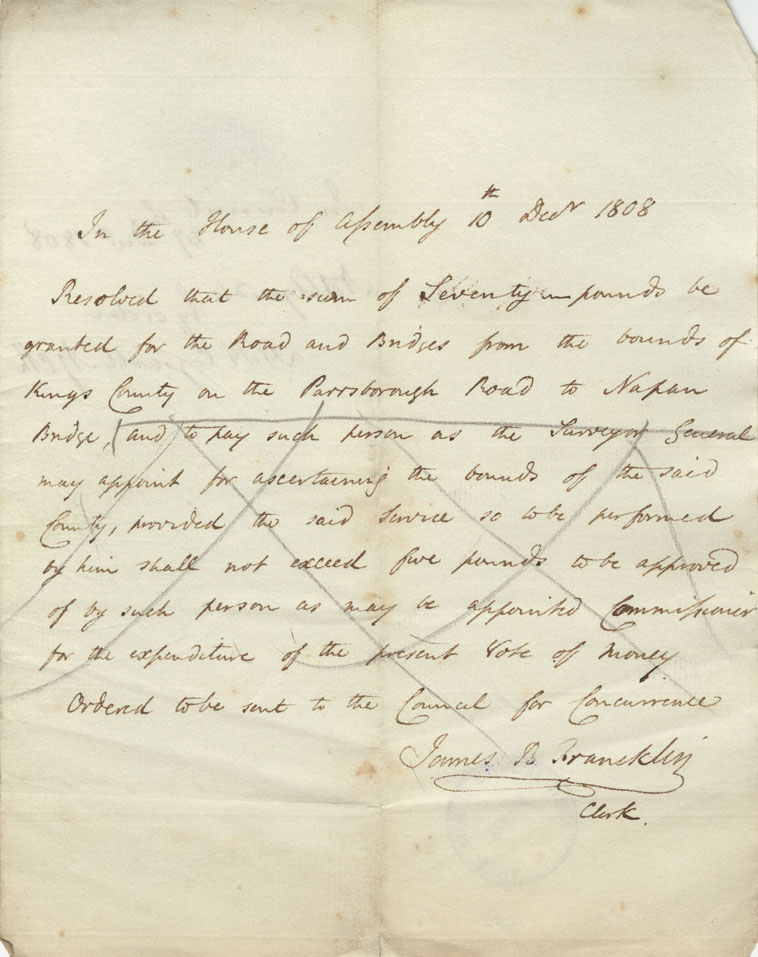 In the House of Assembly 10th Decr 1808
Resolved that the sum of Seventy pounds be
granted for the Road and Bridges from the bounds of
Kings County on the Parrsborough Road to Napan
Bridge, and to pay such person as the Surveyor General
may appoint for ascertaining the bounds of the said
County, provided the said Service so to be performed
by him shall not exceed five pounds to be approved
of by such person as may be appointed Commissioner
for the expenditure of the present Vote of Money
Ordered to be sent to the Council for Concurrence
James B Francklin
Clerk.